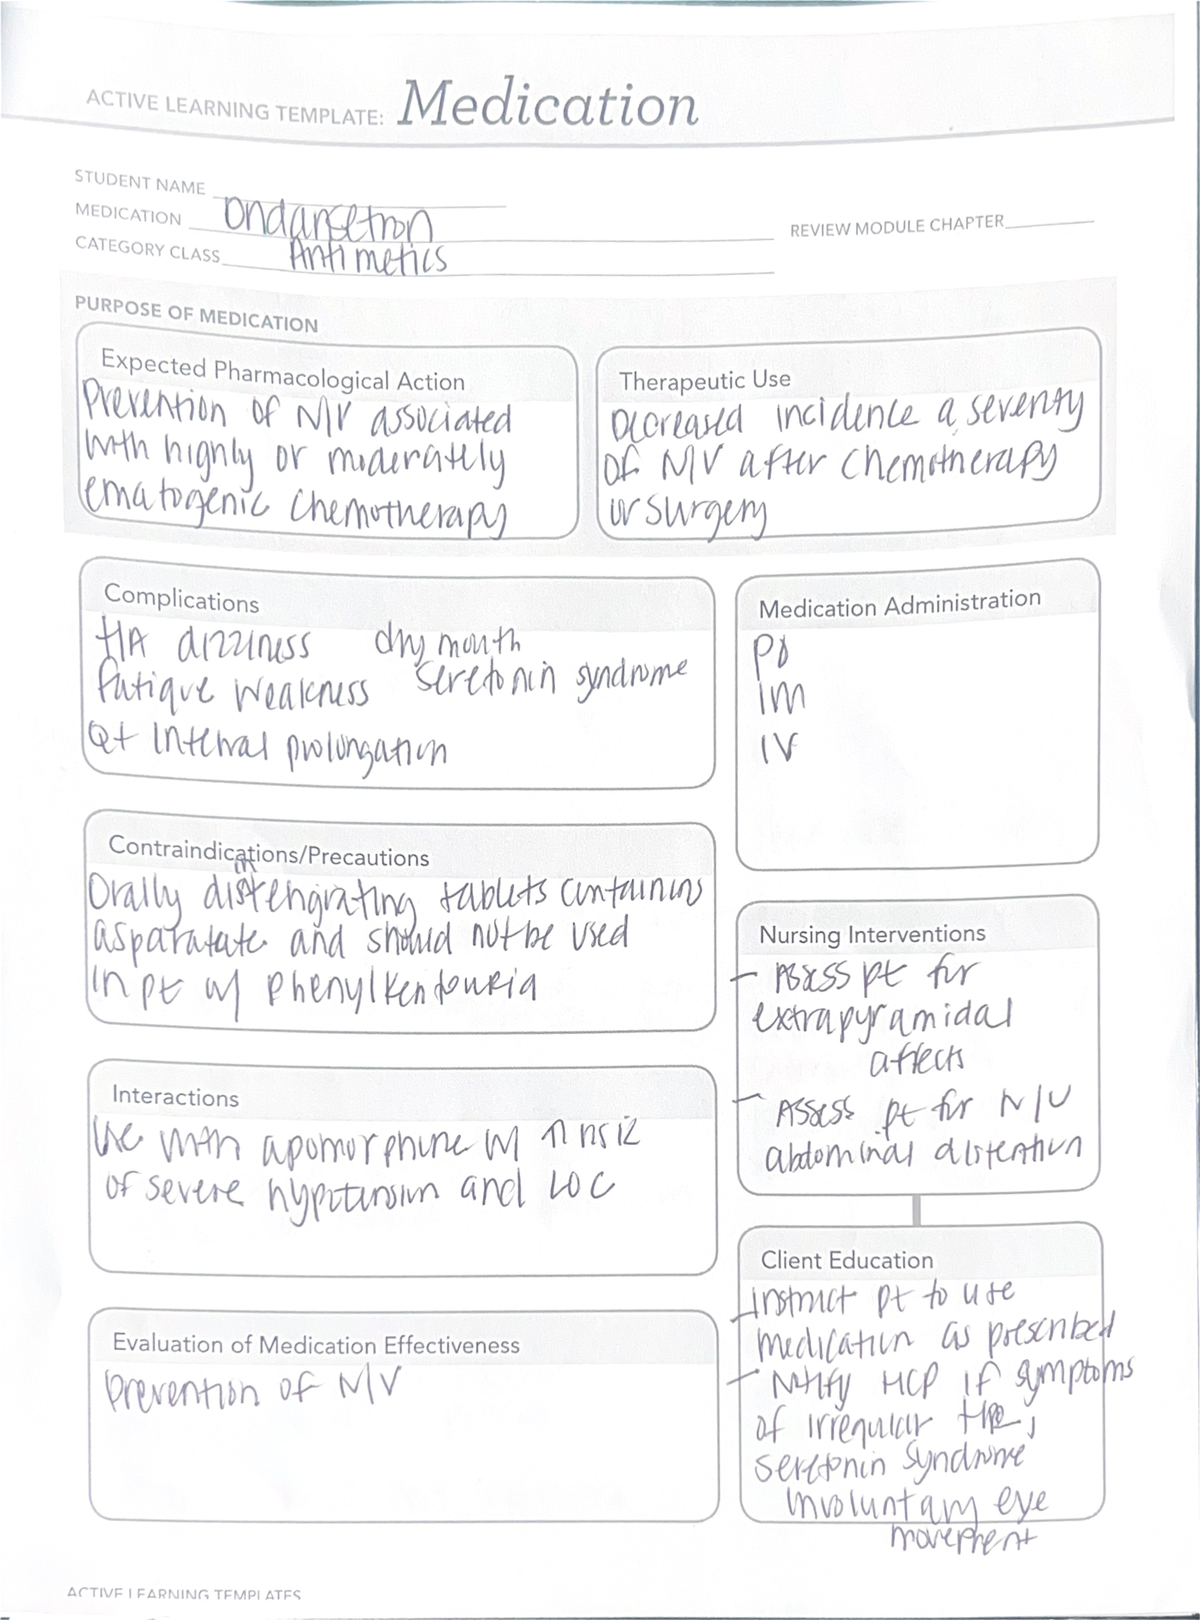 ACTIVE LEARNING TEMPLATE: Medication
STUDENT NAME
MEDICATION Ondansetron
REVIEW MODULE CHAPTER
CATEGORY CLASS Antimetics
PURPOSE OF MEDICATION
Expected Pharmacological Action
Prevention of N/V associated
with highly or moderately
ematogenic chemotherapy
Therapeutic Use
Decreased incidence & severity
of N/V after chemotherapy
or surgery
Complications
HA dizziness dry mouth
fatigue weakness seretonin syndrome
Qt interval prolongation
Medication Administration
PO
IM
IV
Contraindications/Precautions
Orally disintengrating tablets containing
aspartate and should not be used
in pt w/ phenylkentouria
Nursing Interventions
- Assess pt for
extrapyramidal
affects
- Assess pt for N/V
abdominal distention
Interactions
Use with apomorphine w/ ↑ risk
of severe hypotension and LOC
Client Education
- instruct pt to use
medication as prescribed
- Notify HCP if symptoms
of irregular HR,
seretonin syndrome
involuntary eye
movement
Evaluation of Medication Effectiveness
prevention of N/V
ACTIVE LEARNING TEMPLATES